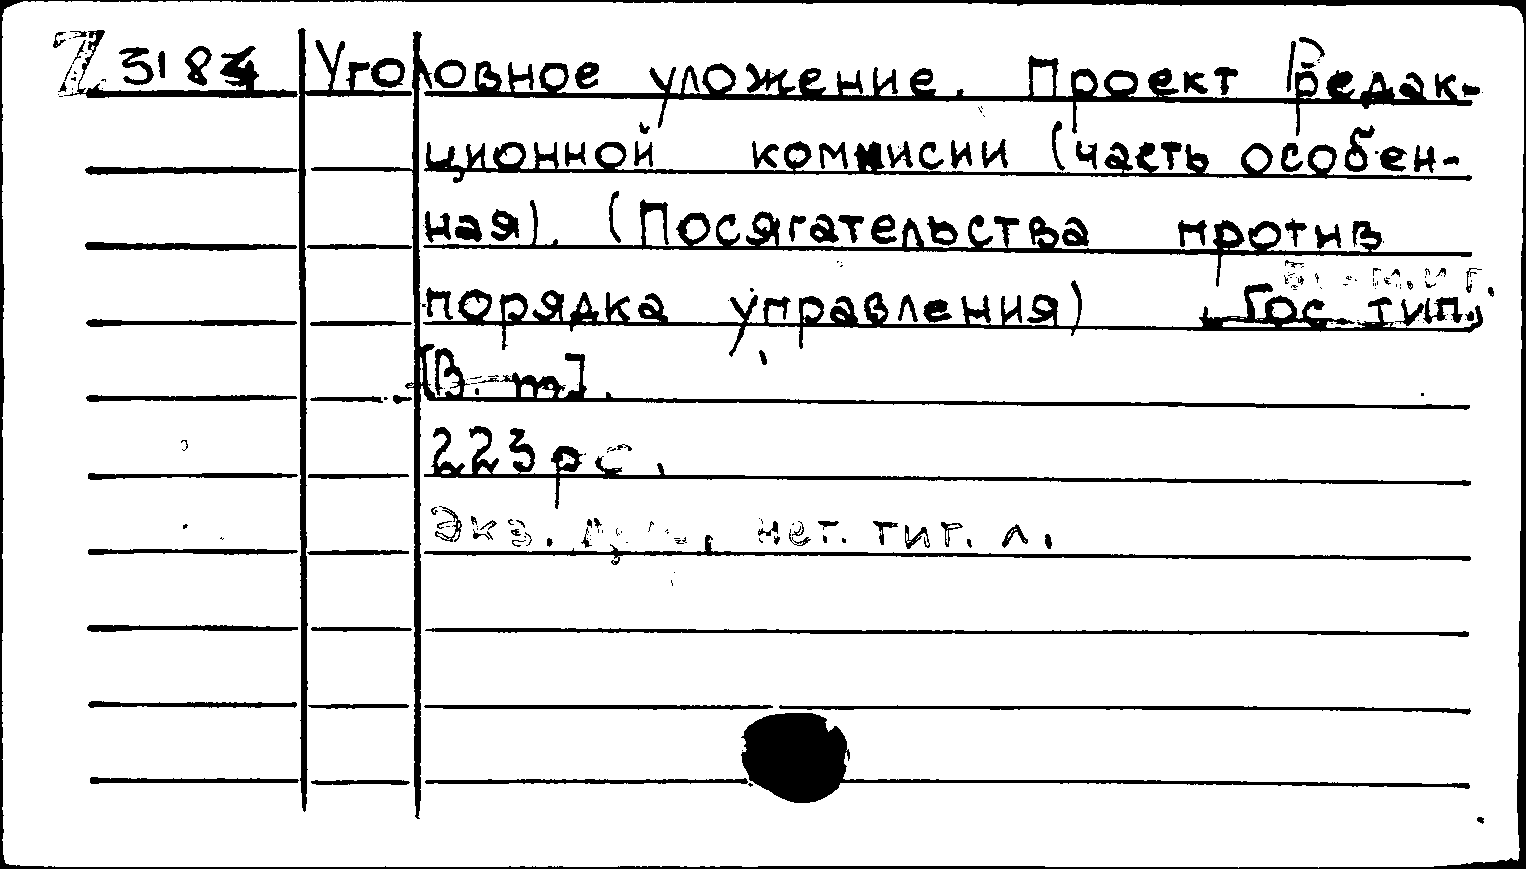 Z 3184 Уголовное уложение. Проект Редак-
ционной коммисии (часть особен-
ная). (Посягательства против
порядка управления)
Гос. тип.
[В. m].
223 pc.
Экз. нет. тит. л.